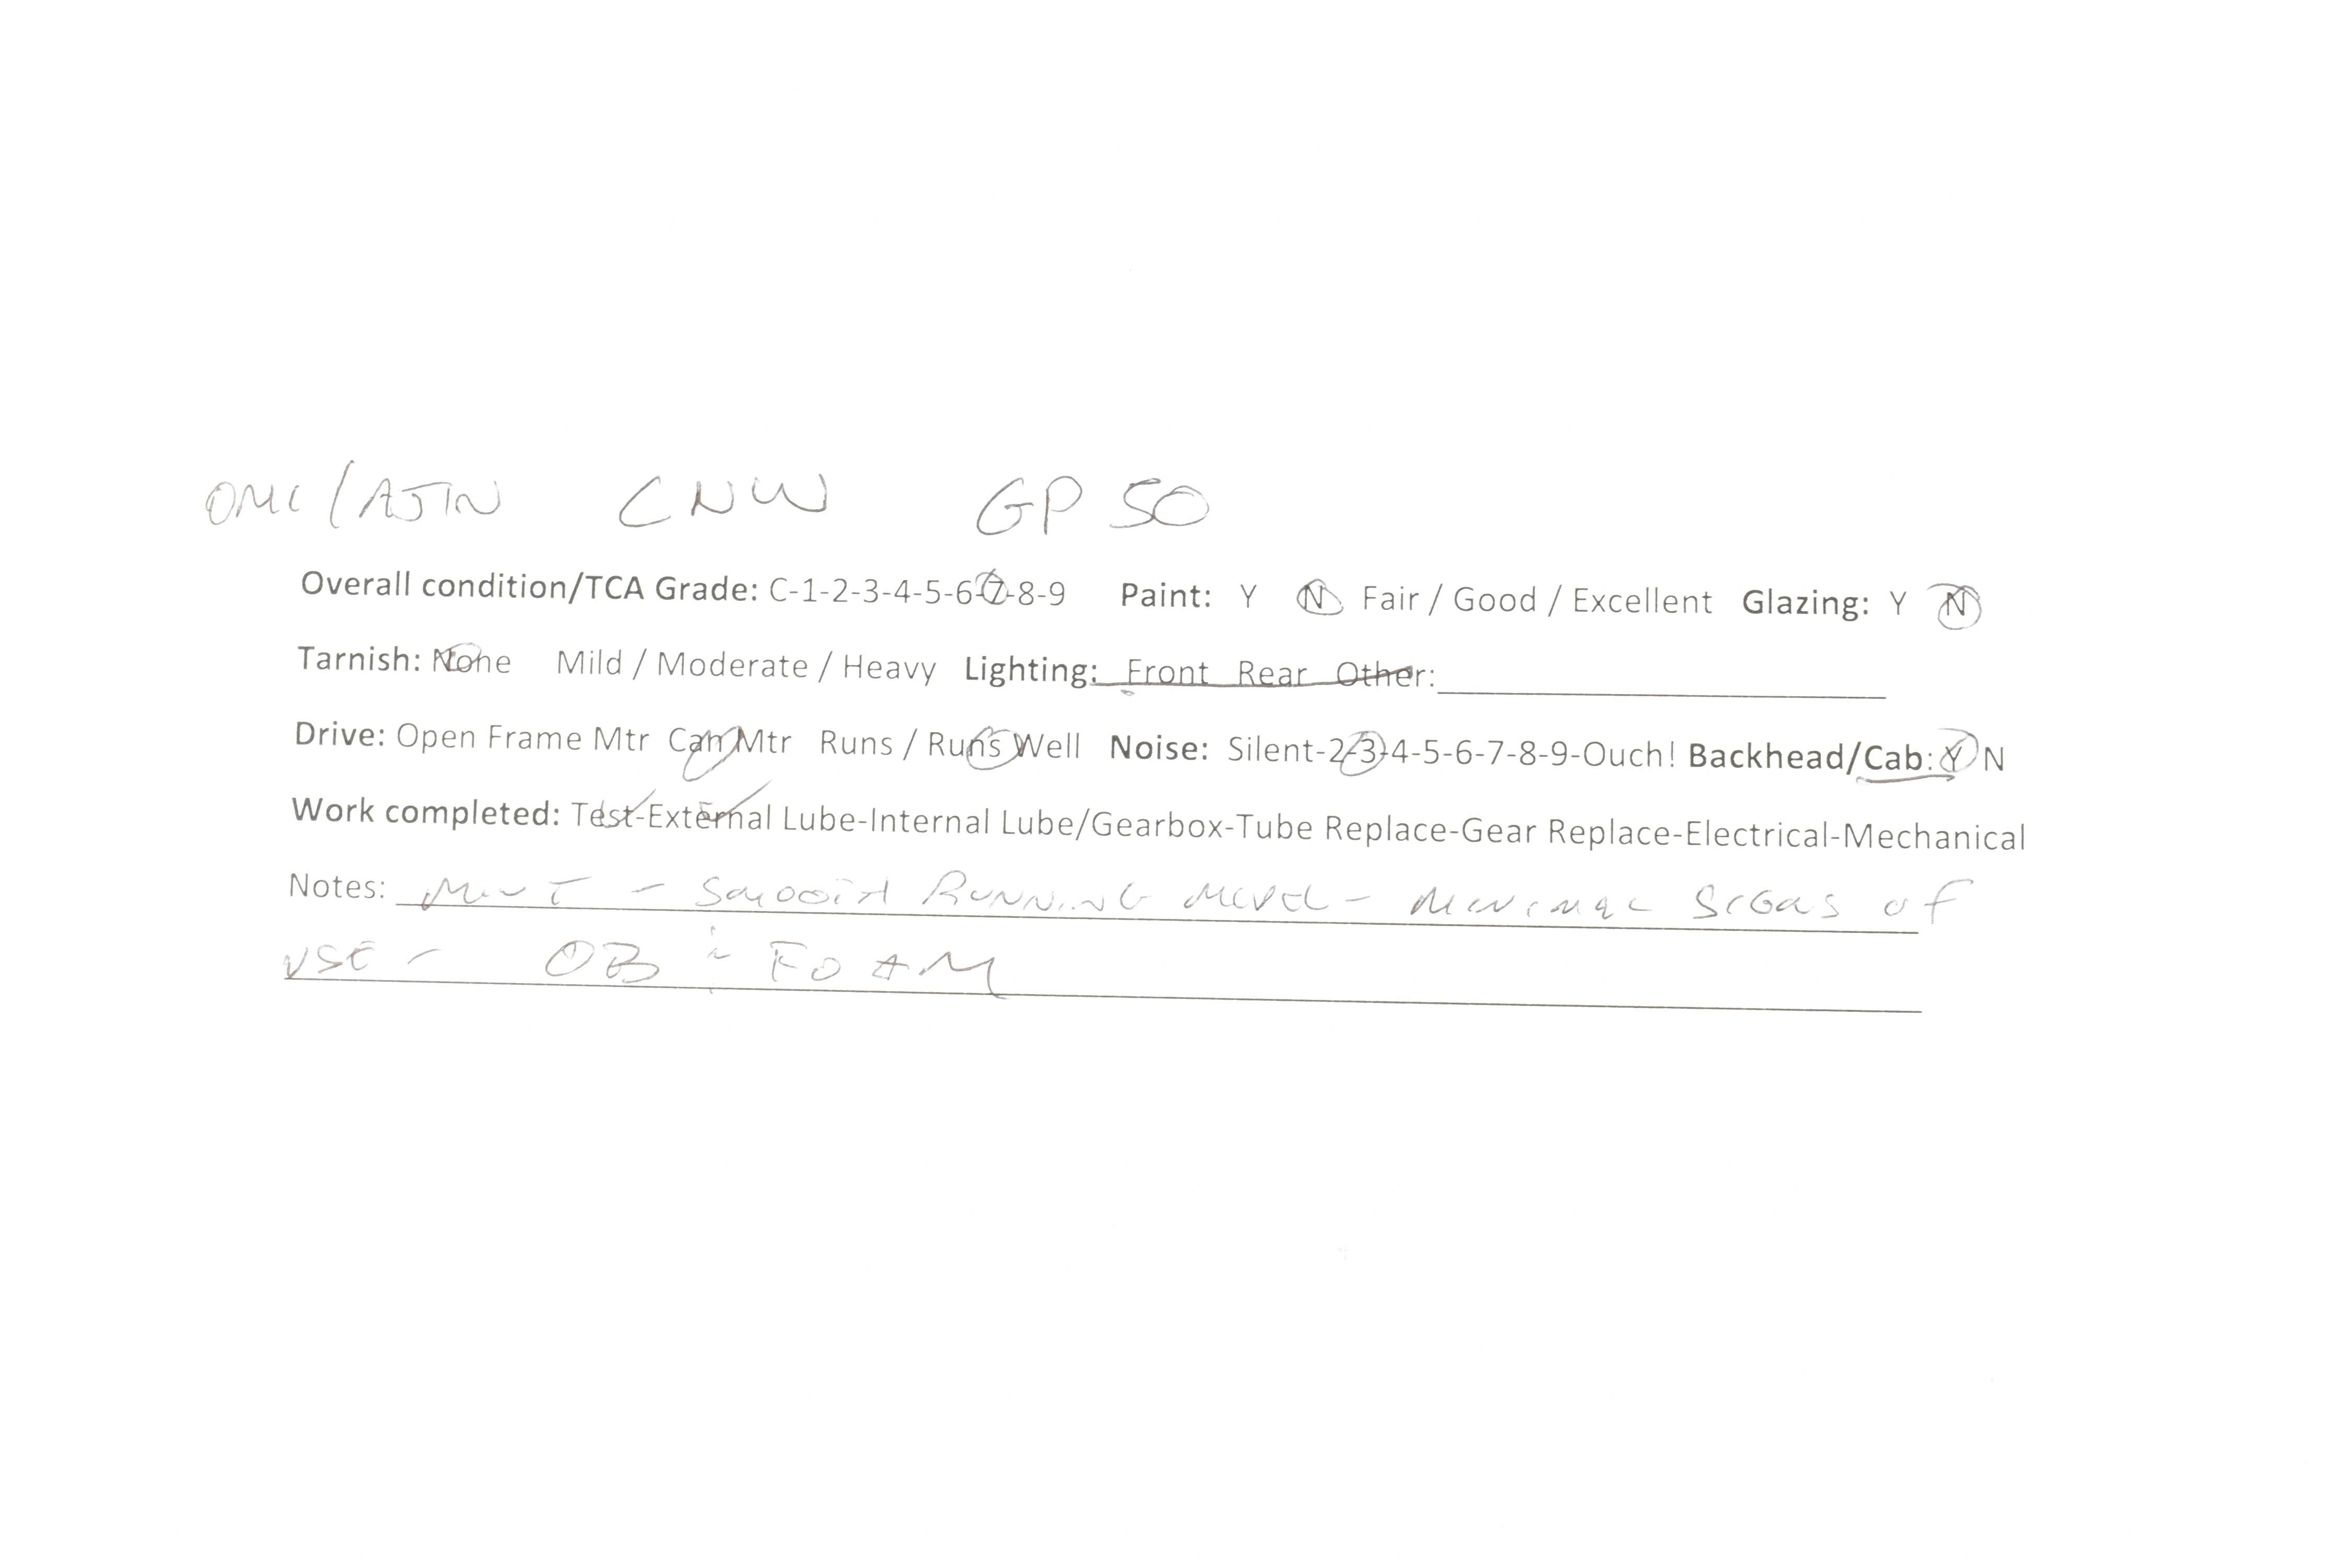 OMC/AJIN CNW GP 50
Overall condition/TCA Grade: C-1-2-3-4-5-6-7-8-9 Paint: Y N Fair / Good / Excellent Glazing: Y N
Tarnish: None Mild / Moderate / Heavy Lighting: Front Rear Other:
Drive: Open Frame Mtr Can Mtr Runs / Runs Well Noise: Silent-2-3-4-5-6-7-8-9-Ouch! Backhead/Cab: Y N
Work completed: Test-External Lube-Internal Lube/Gearbox-Tube Replace-Gear Replace-Electrical-Mechanical
Notes: MINT - SMOOTH RUNNING MODEL - MINIMAL SIGNS OF
USE - OB & FOAM